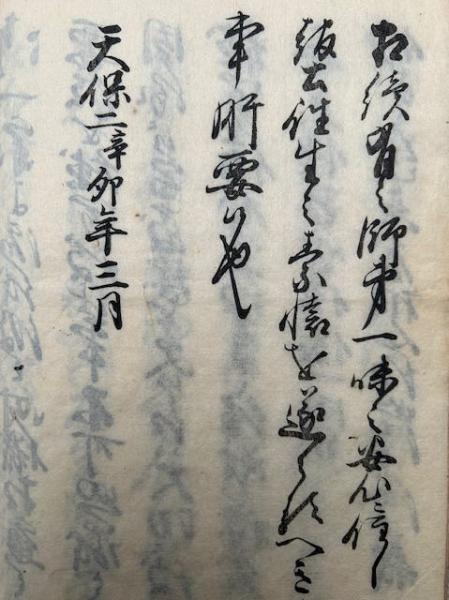 相續有之師弟一味之安心ニ住し
報土往生之素懐を遂らるへき
事肝要候也
天保二辛卯年三月